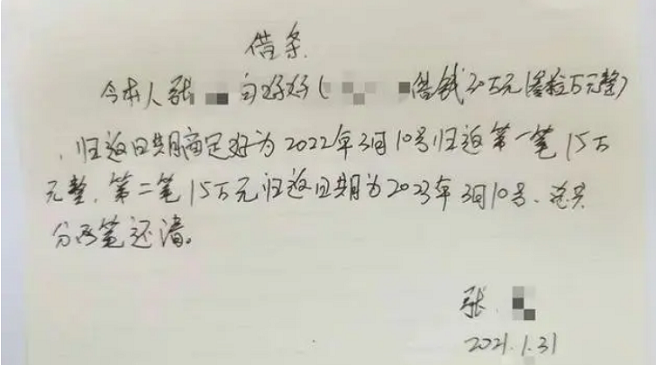 借条
今本人张 向好好( 借钱30万元(叁拾万元整)
,归返日期商定好为2022年3月10号归返第一笔15万
元整,第二笔15万元归返日期为2023年3月10号、总共
分两笔还清。
张
2021.1.31